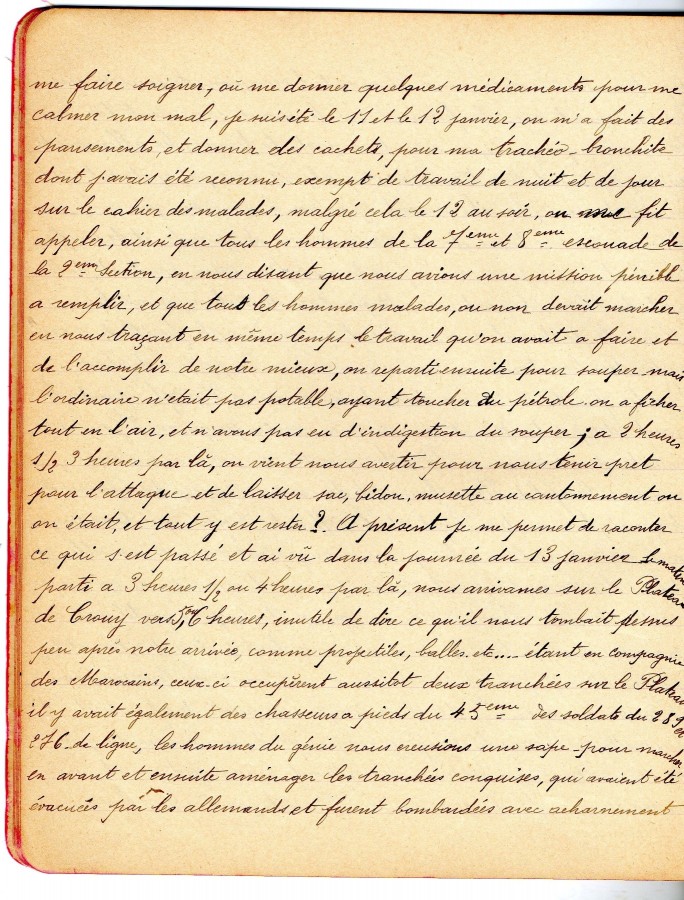 me faire soigner, où me donner quelques médicaments pour me
calmer mon mal, je suis été le 11 et le 12 janvier, on m'a fait des
pansements, et donner des cachets, pour ma trachéo-bronchite
dont j'avais été reconnu, exempt de travail de nuit et de jour
sur le cahier des malades, malgré cela le 12 au soir, on me fit
appeler, ainsi que tous les hommes de la 7eme et 8eme escouade de
la 2eme Section, en nous disant que nous avions une mission pénible
a remplir, et que tout les hommes malades, ou non devait marcher
en nous traçant en même temps le travail qu'on avait a faire et
de l'accomplir de notre mieux, on reparti ensuite pour souper mais
l'ordinaire n'était pas potable, ayant toucher du pétrole on a ficher
tout en l'air, et n'avons pas eu d'indigestion du souper, a 2 heures
1/2 3 heures par là, on vient nous avertir pour nous tenir pret
pour l'attaque et de laisser sac, bidon, musette au cantonnement ou
on était, et tout y est rester ?. A présent je me permet de raconter
ce qui s'est passé et ai vû dans la journée du 13 janvier le matin
parti a 3 heures 1/2 ou 4 heures par là, nous arrivames sur le Plateau
de Crouy vers 5 ou 6 heures, inutile de dire ce qu'il nous tombait dessus
peu après notre arrivée, comme projectiles, balles etc.... étant en compagnie
des Marocains, ceux-ci occupèrent aussitot deux tranchées sur le Plateau
il y avait également des chasseurs a pieds du 45eme des soldats du 289 et
276 de ligne, les hommes du génie nous creusions une sape pour marcher
en avant et ensuite aménager les tranchées conquises, qui avaient été
évacuées par les allemands et furent bombardées avec acharnement